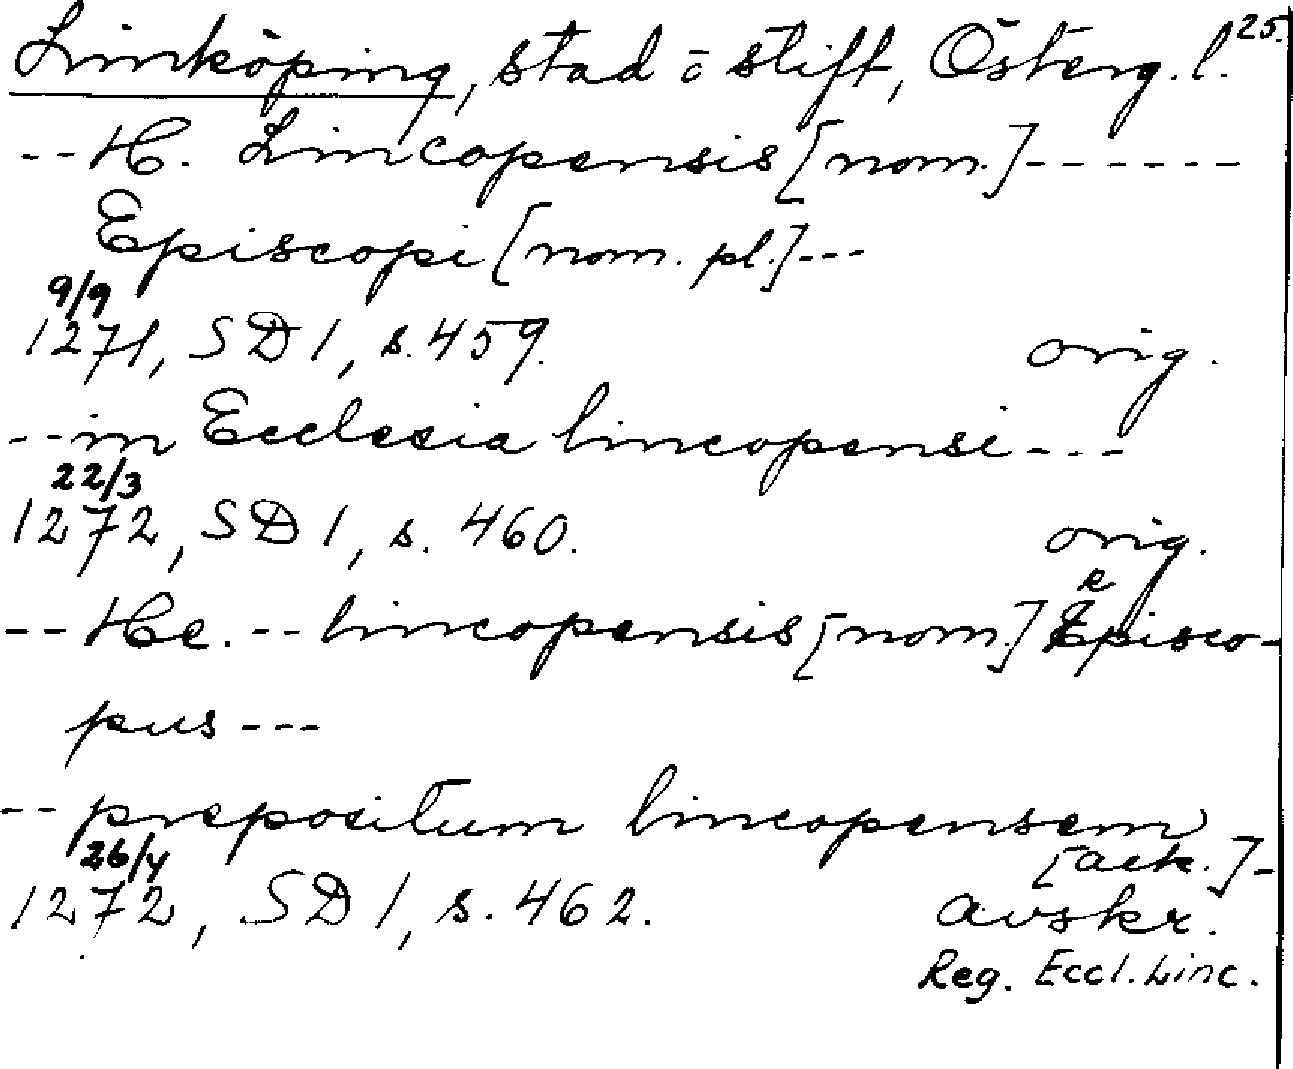 Linköping, stad o stift, Österg. l. 25.
--H. Lincopensis [nom.]------
Episcopi [nom. pl.]---
9/9
1271, SD 1, s. 459. orig.
--in Ecclesia lincopensi---
22/3
1272, SD 1, s. 460. orig.
--He.--lincopensis [nom.] Episco-
pus---
--prepositum lincopensem
[ack.]-
26/4
1272, SD 1, s. 462. avskr.
Reg. Eccl. Linc.